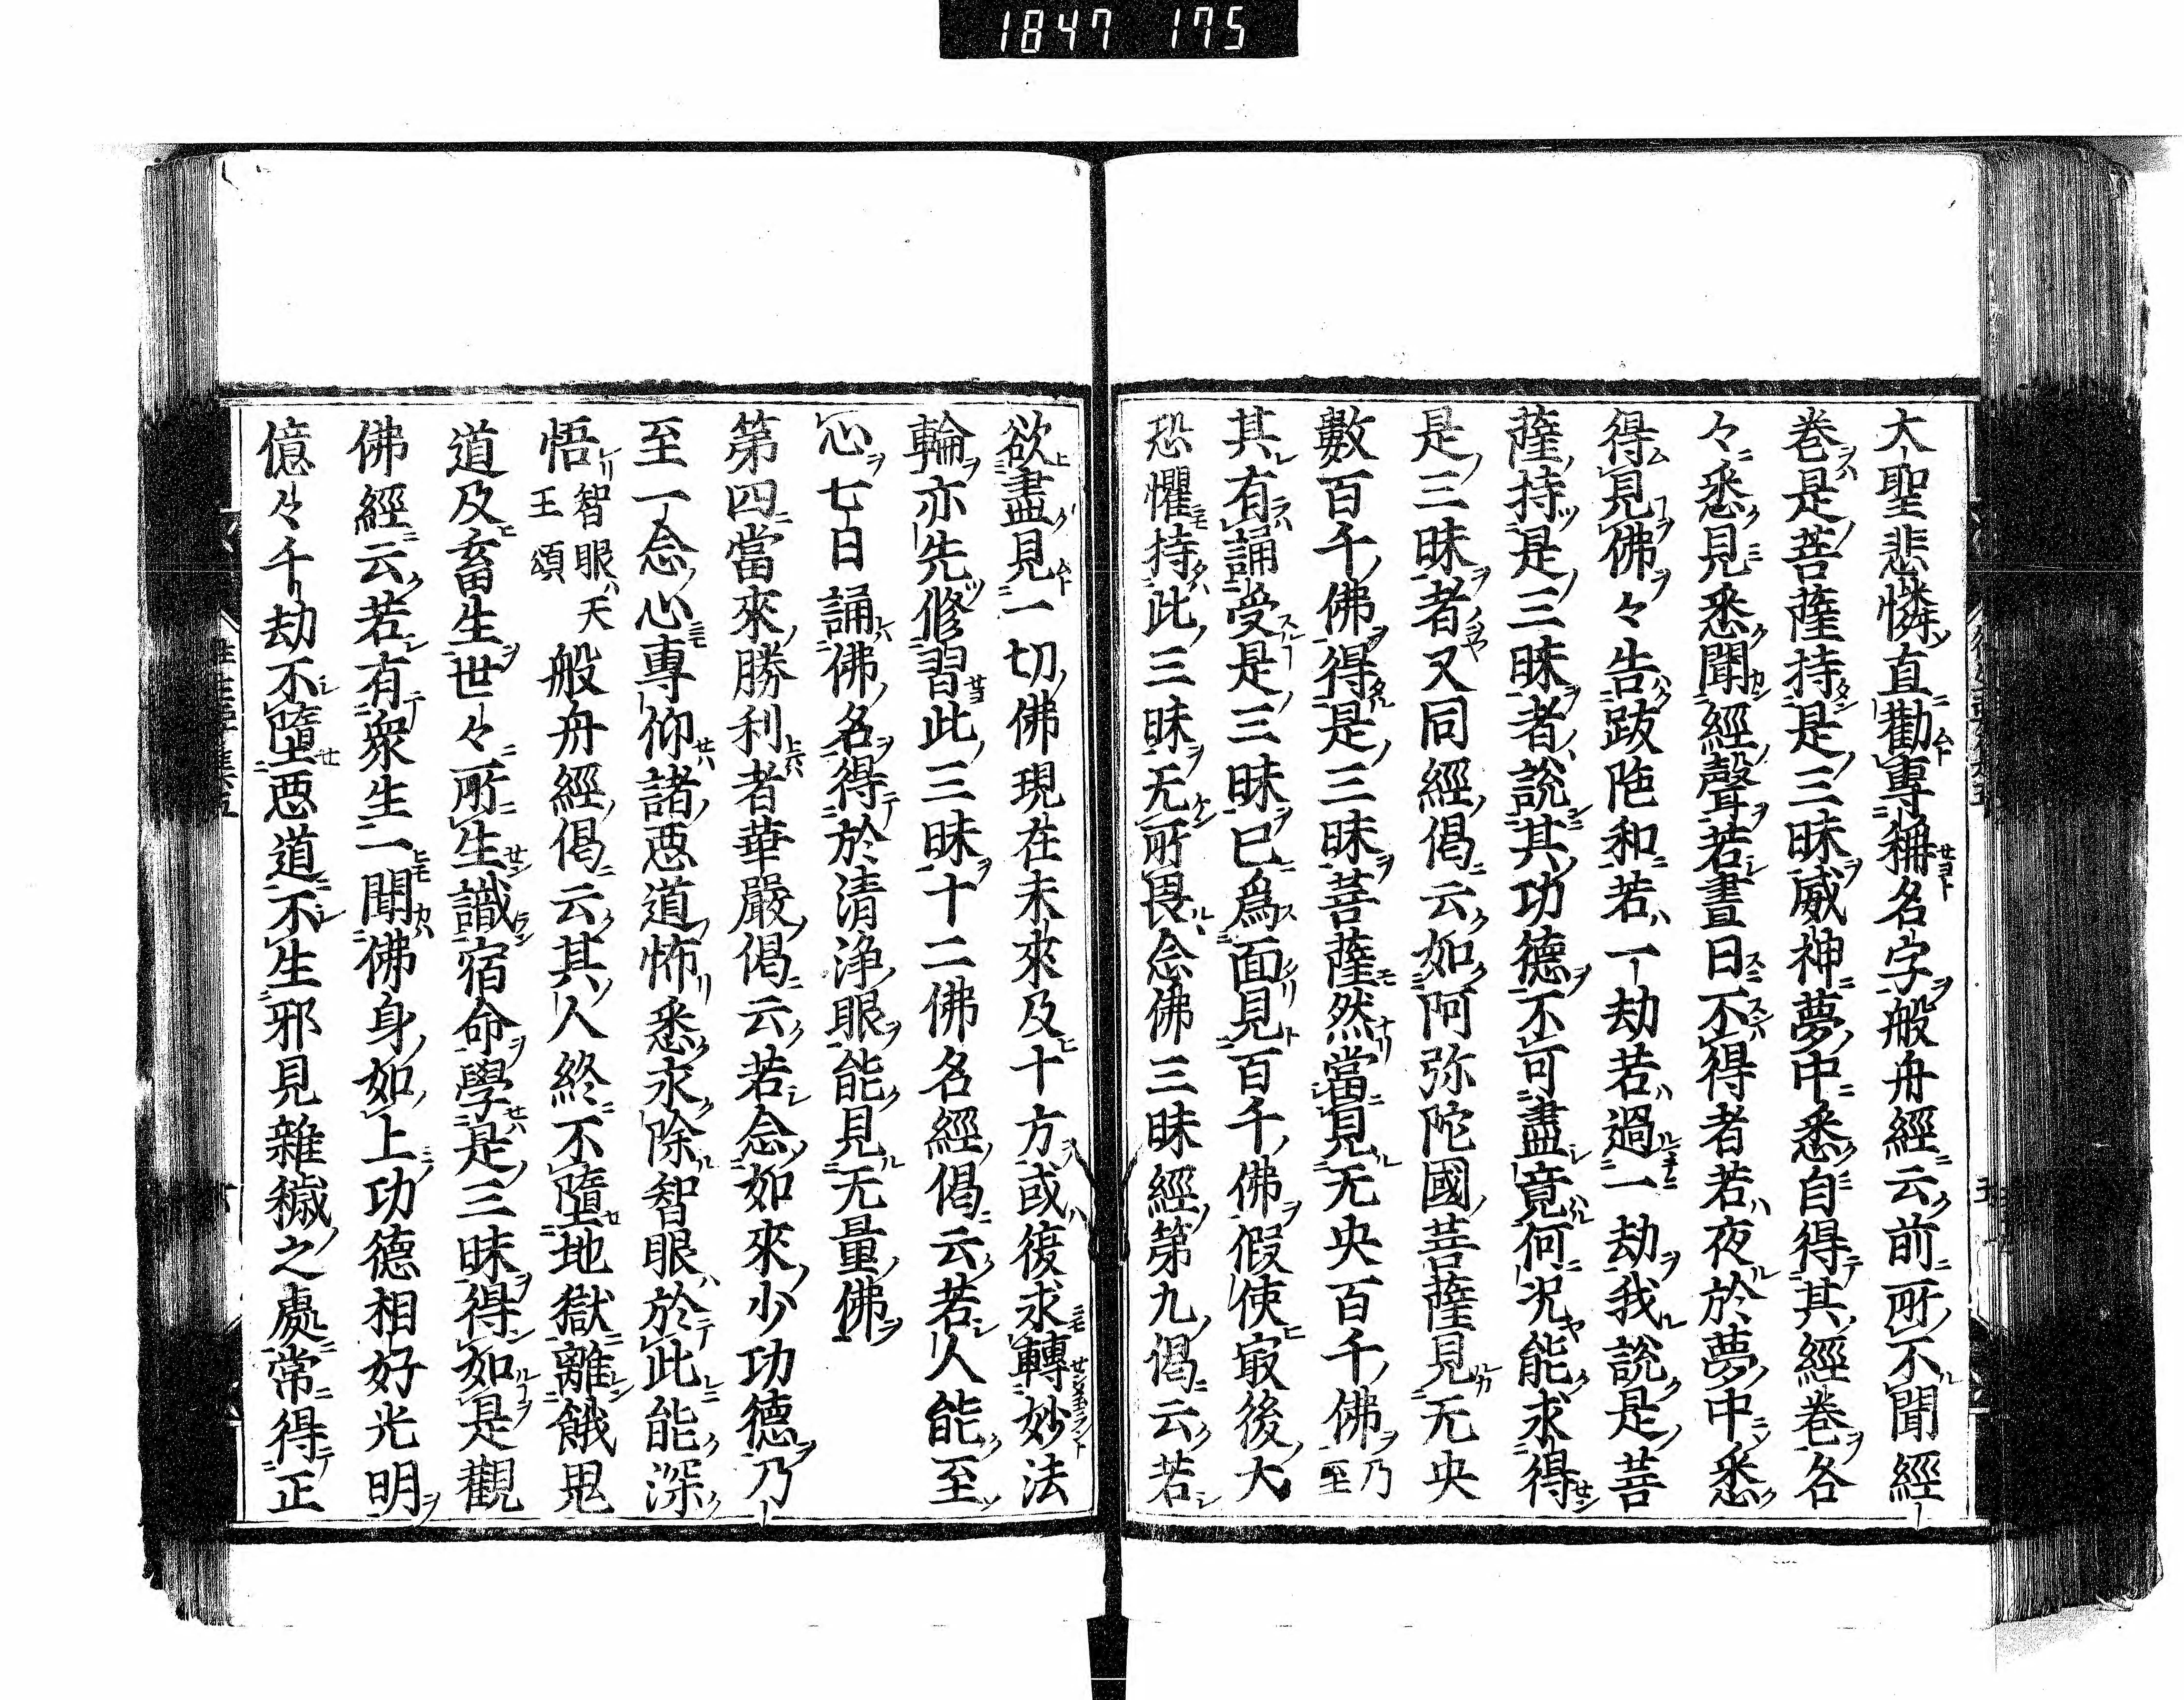 1847 175
大聖悲憐直勸專稱名字般舟經云前所不聞經
卷是菩薩持是三昧威神夢中悉自得其經卷各
々悉見悉聞經聲若晝日不得者若夜於夢中悉
得見佛々告跋陁和若一劫若過一劫我說是菩
薩持是三昧者說其功德不可盡竟何况能求得
是三昧者又同經偈云如阿弥陀國菩薩見无央
數百千佛得是三昧菩薩然當見无央百千佛乃至
其有誦受是三昧已爲面見百千佛假使㝡後大
恐懼持此三昧无所畏念佛三昧經第九偈云若
欲盡見一切佛現在未來及十方或復求轉妙法
輪亦先修習此三昧十二佛名經偈云若人能至
心七日誦佛名得於清淨眼能見无量佛
第四當來勝利者華嚴偈云若念如來少功德乃
至一念心專仰諸惡道怖悉永除智眼於此能深
悟智眼天王頌般舟經偈云其人終不墮地獄離餓鬼
道及畜生世々所生識宿命學是三昧得如是觀
佛經云若有衆生一聞佛身如上功德相好光明
億々千劫不墮惡道不生邪見雜穢之處常得正